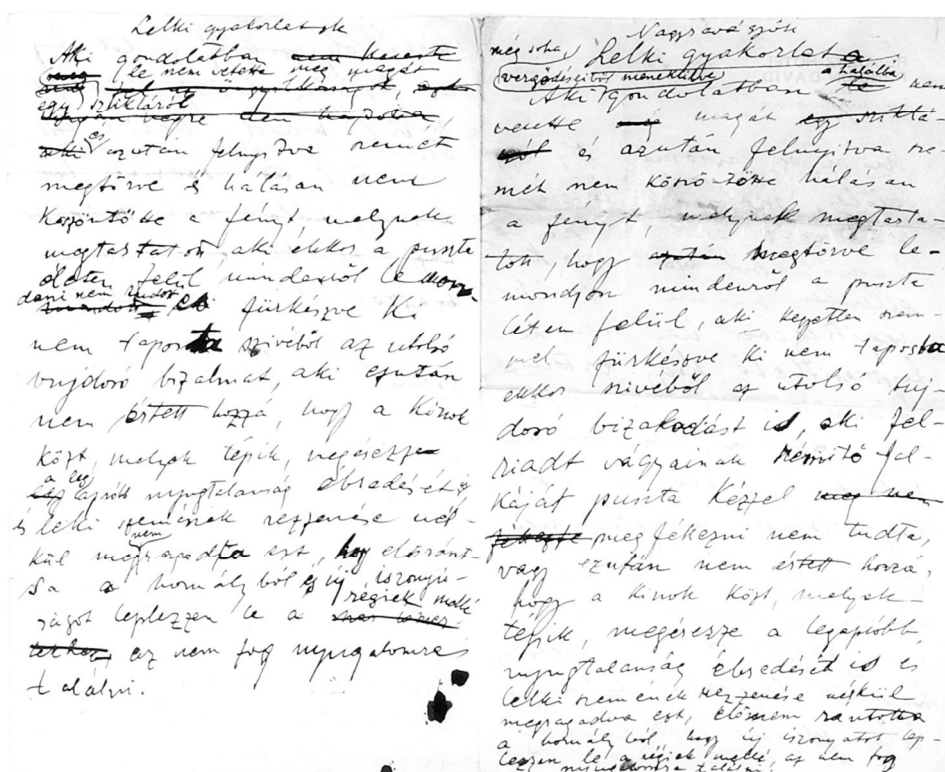 Lelki gyakorlatok
Aki gondolatban
le nem vetette még magát
egy szikláról
és azután felnyitva szemét
megtörve és hálásan nem
köszöntötte a fényt, melynek
megtartatott, aki ekkor a puszta
életen felül mindenről le mon-
dani nem tudott fürkészve Ki
nem taposta szívéből az utolsó
bujdosó bizalmat, aki ezután
nem értett hozzá, hogy a Kinok
közt, melyek tépik, megérezze
a leg apróbb nyugtalanság ébredését is
és lelki szemének rezzenése nél-
kül nem megragadta ezt, hogy előránt-
sa a homályból és új iszonyú-
ságot leplezzen le a régiek mellé
az nem fog nyugalomra is
találni.
Nagyravágyóki
Lelki gyakorlat
még soha,
vergődéseitől menekülve a halálba
Aki gondolatban nem
vetette magát egy sziklá-
ról és azután felnyitva sze-
mét nem köszöntötte hálásan
a fényt, melynek megtarta-
tott, hogy azután megtörve le-
mondjon mindenről a puszta
léten felül, aki kegyetlen szem-
mel fürkészve ki nem taposta
ekkor szívéből az utolsó buj-
dosó bizakodást is, aki fel-
riadt vágyainak rémítő fal-
káját puszta kézzel meg nem
fékezte megfékezni nem tudta,
vagy ezután nem értett hozzá,
hogy a kinok közt, melyek
tépik, megérezze a legapróbb
nyugtalanság ébredését is és
lelki szemének rezzenése nélkül
megragadva ezt, elő nem rántotta
a homályból, hogy új iszonyatot lep-
lezzen le a régiek mellé, az nem fog
nyugalomra találni.